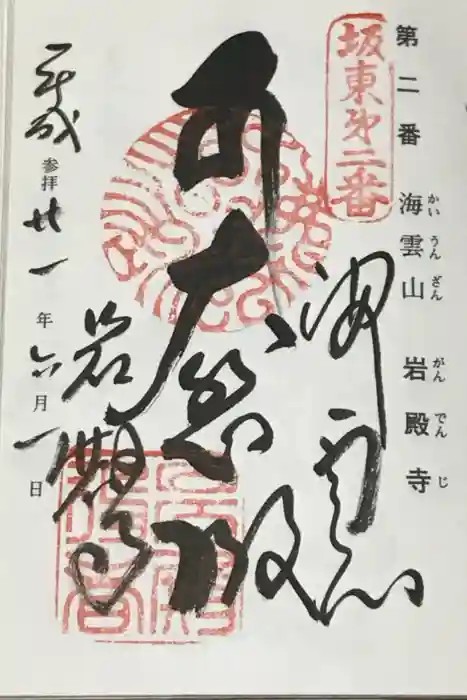 第二番 海雲山 岩殿寺
かいうんざん がんでんじ
坂東㐧二番
海雲
大悲殿
岩殿寺
平成参拝廿一年六月一日